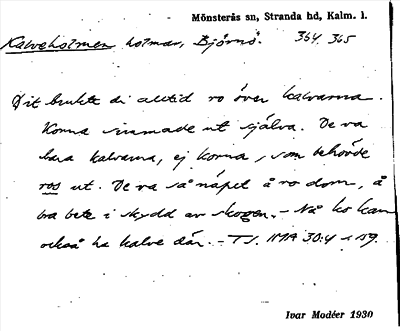 Mönsterås sn, Stranda hd, Kalm. l.
Kalveholmen holmar, Björnö. 364 365
Dit brukte di alltid ro över kalvarna.
Korna simmade ut själva. De va
bara kalvarna, ej korna, som behövde
ros ut. De va så nápet å ro dom, å
bra bete i skydd av skogen. – Nå ko kan
också ha kalve där. – TJ. IMA 30:4 s 159.
Ivar Modéer 1930